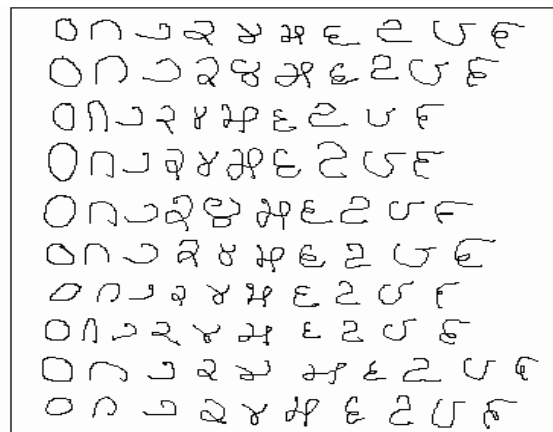 ೦ ೧ ೨ ೩ ೪ ೫ ೬ ೭ ೮ ೯
೦ ೧ ೨ ೩ ೪ ೫ ೬ ೭ ೮ ೯
೦ ೧ ೨ ೩ ೪ ೫ ೬ ೭ ೮ ೯
೦ ೧ ೨ ೩ ೪ ೫ ೬ ೭ ೮ ೯
೦ ೧ ೨ ೩ ೪ ೫ ೬ ೭ ೮ ೯
೦ ೧ ೨ ೩ ೪ ೫ ೬ ೭ ೮ ೯
೦ ೧ ೨ ೩ ೪ ೫ ೬ ೭ ೮ ೯
೦ ೧ ೨ ೩ ೪ ೫ ೬ ೭ ೮ ೯
೦ ೧ ೨ ೩ ೪ ೫ ೬ ೭ ೮ ೯
೦ ೧ ೨ ೩ ೪ ೫ ೬ ೭ ೮ ೯